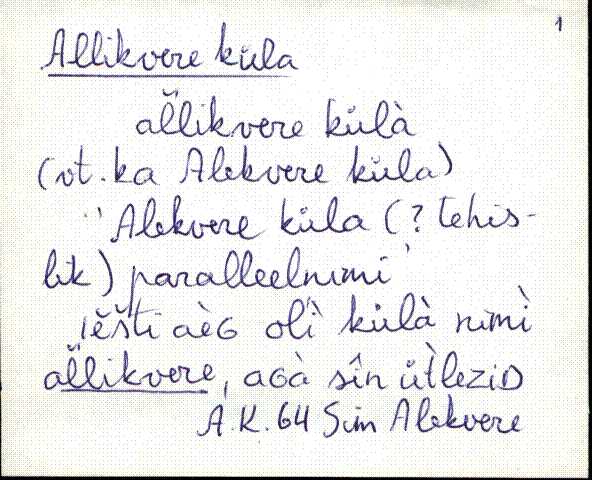 1
Allikvere küla
al̆likvere külà
(vt. ka Alekvere küla)
Alekvere küla (? tehis-
lik) paralleelnimi
iĕšti aèG olì külà nimì
al̆likvere, aGà sîn üt̀leziD
A.K. 64 Sim Alekvere